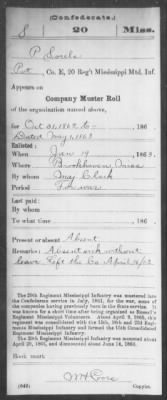 (Confederate)
S 20 Miss.
P Sorels
Pvt, Co. E, 20 Reg't Mississippi Mtd. Inf.
Appears on
Company Muster Roll
of the organization named above,
for Oct 31, 1862 to 186 .
Dated May 1, 1863 186 .
Enlisted:
When Jan 19, 1863.
Where Brookhaven, Miss
By whom Maj Clark
Period
Last paid:
By whom
To what time , 186 .
Present or absent Absent
Remarks: Absent without
leave left the Co. April 4/63
The 20th Regiment Mississippi Infantry was mustered into
the Confederate service in July, 1861, for the war, some of
the companies having previously been in the State service. It
was known for a short time after being organized as Russell's
Regiment Mississippi Volunteers. About April 9, 1865, this
regiment was consolidated with the
Regiments Mississippi Infantry and formed the 15th Consolidated
Regiment Mississippi Infantry.
The 20th Regiment Mississippi Infantry was mounted about
April 20, 1863, and dismounted about June 14, 1863.
Book mark:
(642)
Copyist.